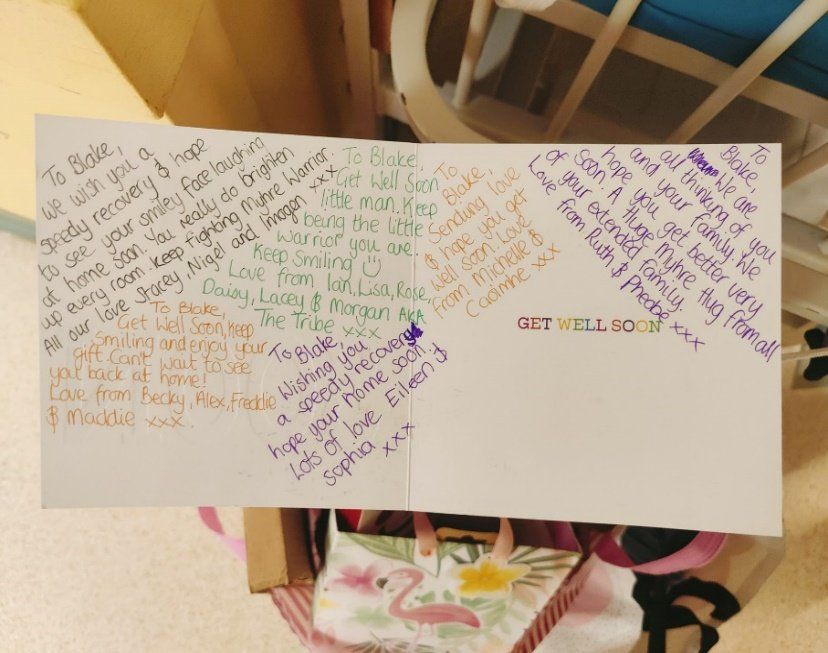 To Blake,
We wish you a
speedy recovery & hope
to see your smiley face laughing
at home soon. You really do brighten
up every room. Keep fighting Myhre Warrior.
All our love Stacey, Nigel and Imogen xxx
To Blake,
Get Well Soon
little man. Keep
being the little
warrior you are.
Keep Smiling
Love from Ian, Lisa, Rose,
Daisy, Lacey & Morgan AKA
The Tribe xxx
To Blake,
Get Well Soon, Keep
Smiling and enjoy your
gift. Can't wait to see
you back at home!
Love from Becky, Alex, Freddie
& Maddie xxx.
To Blake,
Wishing you
a speedy recovery
hope your home soon.
Lots of love Eileen &
Sophia xxx
To
Blake,
Sending love
& hope you get
well soon. Love
from Michelle &
Caoimhe xxx
To
Blake,
We are
all thinking of you
and your family. We
hope you get better very
soon. A Huge Myhre Hug from all
of your extended family.
Love from Ruth & Pheobe xxx
GET WELL SOON